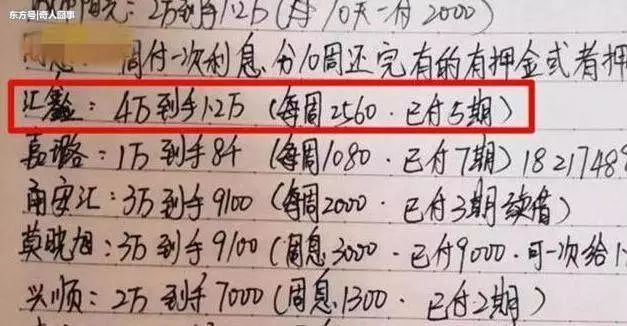 东方号|奇人囧事
元：2万到手1.2万（每10天一付2000）
周付一次利息.分10周还完有的有押金或者押
汇鑫：4万到手1.2万（每周2560.已付5期）
嘉璐：1万到手84（每周1080.已付7期）18217489
甬安汇：3万到手9100（每周2000.已付3期续借）
莫晓旭：3万到手9100（周息3000.已付9000.可一次给1
兴顺：2万到手7000（周息1300.已付2期）